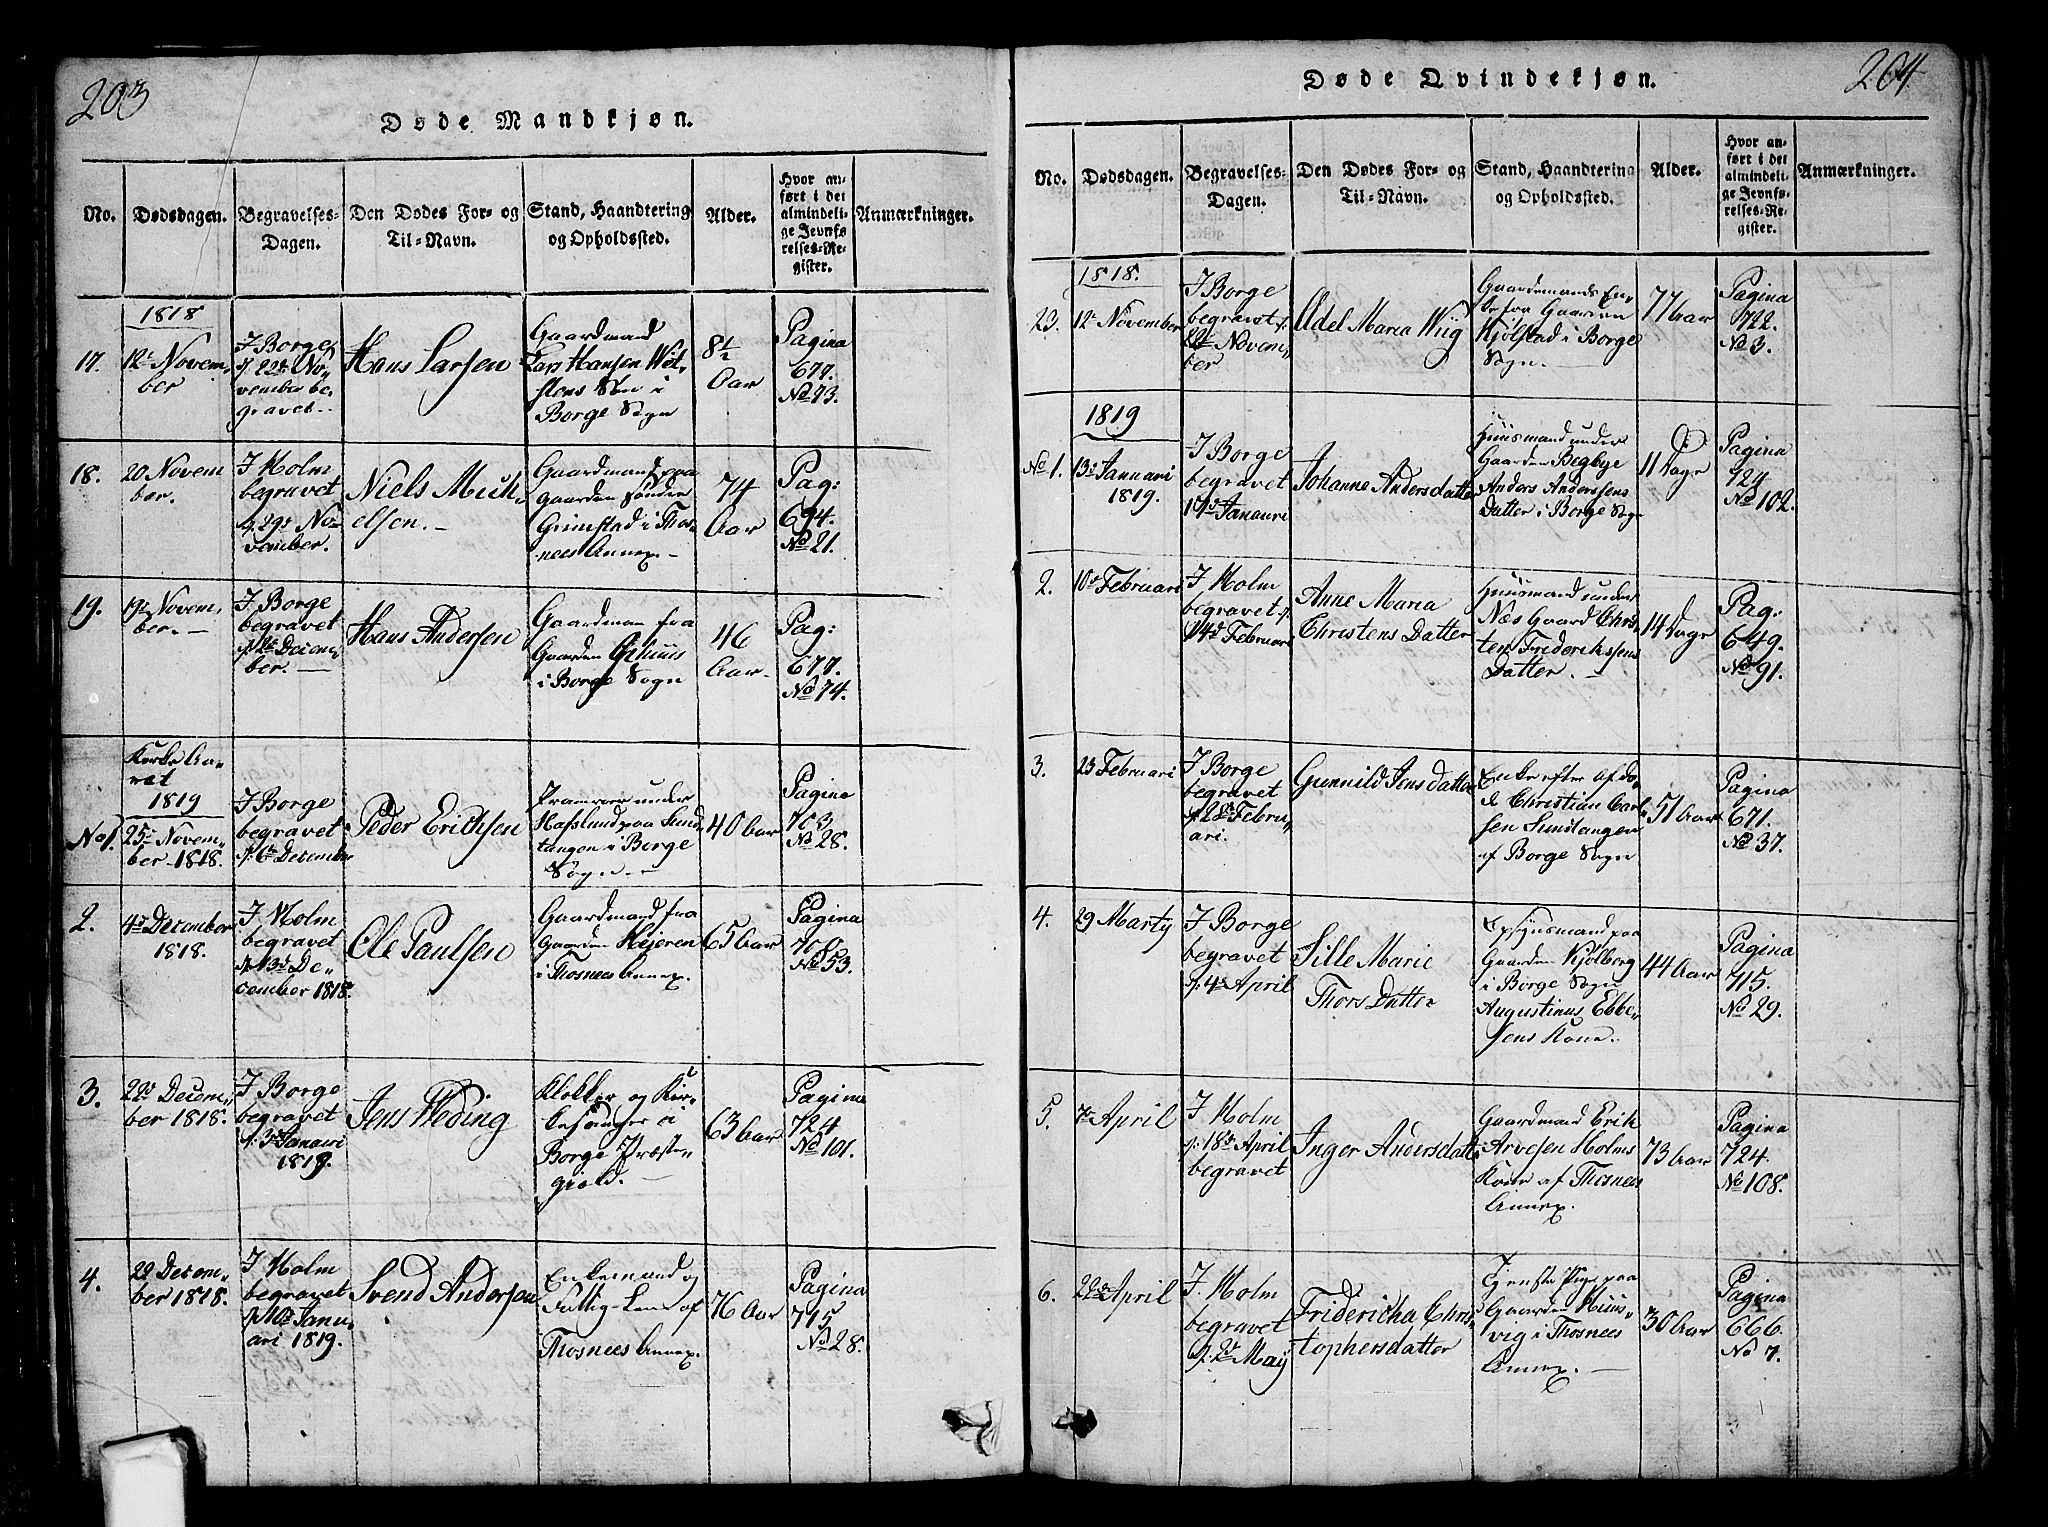 203
Døde Mandkjøn.
No.
Dødsdagen.
Begravelses-
Dagen.
Den Dødes For- og
Til-Navn.
Stand, Haandtering
og Opholdssted.
Alder.
Hvor an-
ført i det
almindeli-
ge Jevnfø-
relses-Re-
gister.
Anmærkninger.
17.
1818
12te Novem-
ber
I Borge
d. 22de No-
vember be-
gravet.-
Hans Larsen
Gaardmand
Lars Hansen
Søn i
Borge Sogn
8½
Aar
Pagina
677.
No 73.
18.
20 Novem
ber.
I Holm
begravet
d. 29de No-
vember.
Niels Mich-
elsen.-
Gaardmand paa
Gaarden Søndre
Grimstad i Thos-
nees Annex.-
74
Aar
Pag:
694.
No 21.
19.
19de Novem-
ber.-
I Borge
begravet
Decem-
ber.-
Hans Andersen
Gaardman fra
Gaarden
i Borge Sogn
46
Aar.
Pag:
677.
No 74.
Kirke Aa-
ret
1819
No 1.
25de Novem-
ber 1818.
I Borge
begravet
d. 6te December
Peder Erichsen
under
Hafslund paa Sund-
tangen i Borge
Sogn.-
40 Aar
Pagina
703
No 28.
2.
4de December
1818.
I Holm
begravet
d. 13de De-
cember 1818.
Ole Paulsen
Gaardmand fra
Gaarden
i Thosnees Annex.
65 Aar
Pagina
708.
No 53.
3.
22de Decem-
ber 1818.
I Borge
begravet
d. 3de Januari
1819.
Jens Weding
Klokker og Kir-
kesanger i
Borge Præste-
gield.-
63 Aar
Pagina
724
No 101.
4.
22 Decem-
ber 1818.
I Holm
begravet
d. 10de Janu-
ari 1819.
Svend Andersen
Enkemand og
Fattig-Lem af
Thosnees Annex.
76 Aar
Pagina
715
No 28.
204
Døde Qvindekjøn.
No.
Dødsdagen.
Begravelses-
Dagen.
Den Dødes For- og
Til-Navn.
Stand, Haandtering
og Opholdssted.
Alder.
Hvor an-
ført i det
almindeli-
ge Jevnfø-
relses-Re-
gister.
Anmærkninger.
1818.
23.
12te November
I Borge
begravet d.
22de Novem-
ber
Adel Maria Wiig
Gaardemands En-
ke fra Gaarden
Kjølstad i Borge
Sogn.-
77 Aar
Pagina
722.
No 3.
1819
No 1.
13de Januari
1819.
I Borge
begravet
17de Januari
Johanne Andersdatter
Huusmand under
Gaarden Begbye
Anders Anderssens
Datter i Borge Sogn
11 Dage
Pagina
724
No 102.
2.
10de Februari
I Holm
begravet d.
14de Februari
Anne Maria
Christens Datter
Huusmand under
Næs Gaard Chris-
ten Frederikssens
Datter.-
14 Dage
Pag:
649.
No 91.
3.
23 Februari
I Borge
begravet
d. 28de Febru-
ari.
Gunnild Jens datter
Enke efter afdø-
de Christian Carl-
sen Sundtangen
af Borge Sogn
51 Aar
Pagina
671.
No 37.
4.
29 Marty
I Borge
begravet
d. 4de April
Sille Marie
Thors Datter
Opsynsmand paa
Gaarden Kjølberg
i Borge Sogn
Augustinus Ebbe-
sens Kone.
44 Aar
Pagina
715.
No 29.
5.
7de April
I Holm
d. 18de April
begravet
Inger Andersdatter
Gaardmand Erik
Arvesen Holms
Kone af Thosnees
Annex.
73 Aar
Pagina
724.
No 108.
6.
22de April
I Holm
begravet
d. 2de Maij
Fridericha Chris-
tophersdatter
Tjeneste Pige paa
Gaarden Huus-
vig i Thosnees
Annex.-
30 Aar
Pagina
666.
No 7.